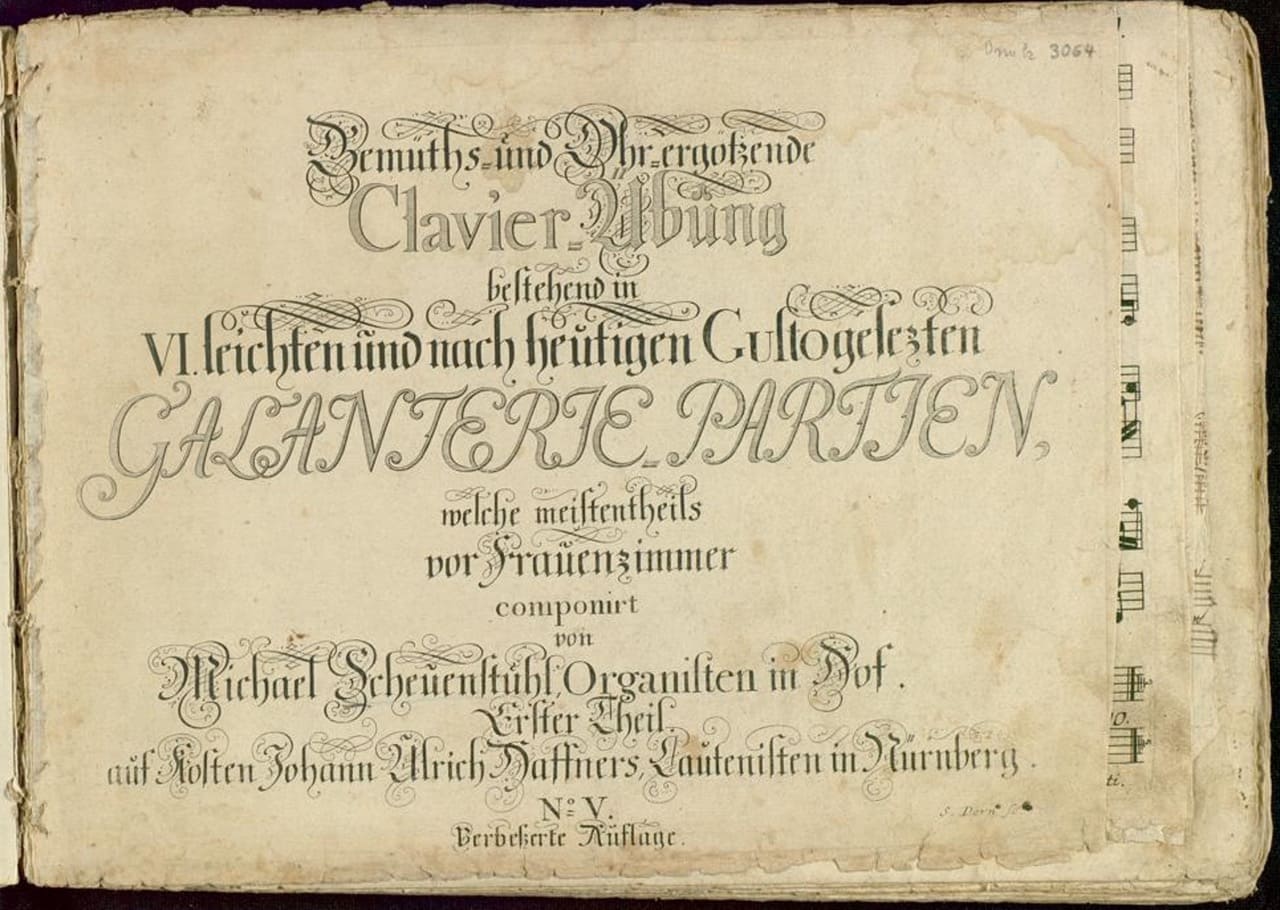 Druck 3064
Gemüths-und Ohr-ergötzende
Clavier-Übung
bestehend in
VI. leichten und nach heutigen Gusto gesezten
GALANTERIE-PARTIEN,
welche meistentheils
vor Frauenzimmer
componirt
von
Michael Scheuenstuhl, Organisten in Hof.
Erster Theil.
auf Kosten Johann Ulrich Haffners, Lautenisten in Nürnberg.
No: V.
Verbeßerte Auflage.
S. Dorn sc.
10.
ti.